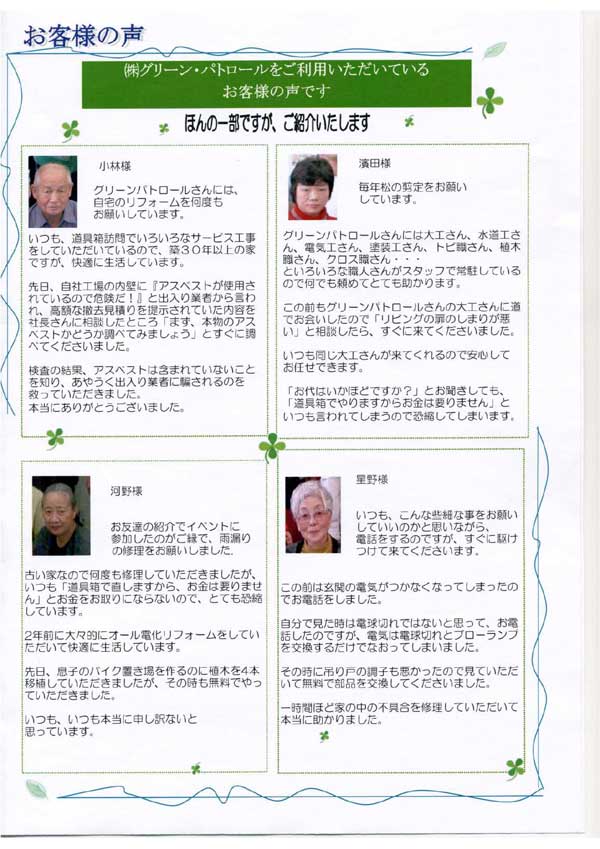 お客様の声
㈱グリーン・パトロールをご利用いただいている
お客様の声です
ほんの一部ですが、ご紹介いたします
小林様
グリーンパトロールさんには、
自宅のリフォームを何度も
お願いしています。
いつも、道具箱訪問でいろいろなサービス工事
をしていただいているので、築30年以上の家
ですが、快適に生活しています。
先日、自社工場の内壁に『アスベストが使用さ
れているので危険だ！』と出入り業者から言わ
れ、高額な撤去見積りを提示されていた内容を
社長さんに相談したところ「まず、本物のアス
ベストかどうか調べてみましょう」とすぐに調
べてくださいました。
検査の結果、アスベストは含まれていないこと
を知り、あやうく出入り業者に騙されるのを
救っていただきました。
本当にありがとうございました。
濱田様
毎年松の剪定をお願い
しています。
グリーンパトロールさんには大工さん、水道工さ
ん、電気工さん、塗装工さん、トビ職さん、植木
職さん、クロス職さん・・・
といろいろな職人さんがスタッフで常駐している
ので何でも頼めてとても助かります。
この前もグリーンパトロールさんの大工さんに道
でお会いしたので「リビングの扉のしまりが悪
い」と相談したら、すぐに来てくださいました。
いつも同じ大工さんが来てくれるので安心して
お任せできます。
「お代はいかほどですか？」とお聞きしても、
「道具箱でやりますからお金は要りません」と
いつも言われてしまうので恐縮してしまいます。
河野様
お友達の紹介でイベントに
参加したのがご縁で、雨漏り
の修理をお願いしました.
古い家なので何度も修理していただきましたが、
いつも「道具箱で直しますから、お金は要りませ
ん」とお金をお取りにならないので、とても恐縮
しています。
2年前に大々的にオール電化リフォームをしてい
ただいて快適に生活しています。
先日、息子のバイク置き場を作るのに植木を4本
移植していただきましたが、その時も無料でやっ
ていただきました。
いつも、いつも本当に申し訳ないと
思っています。
星野様
いつも、こんな些細な事をお願い
していいのかと思いながら、
電話をするのですが、すぐに駆け
つけて来てくださいます。
この前は玄関の電気がつかなくなってしまったの
でお電話をしました。
自分で見た時は電球切れではないと思って、お電
話したのですが、電気は電球切れとブローランプ
を交換するだけでなおってしまいました。
その時に吊り戸の調子も悪かったので見ていただ
いて無料で部品を交換してくださいました。
一時間ほど家の中の不具合を修理していただいて
本当に助かりました。